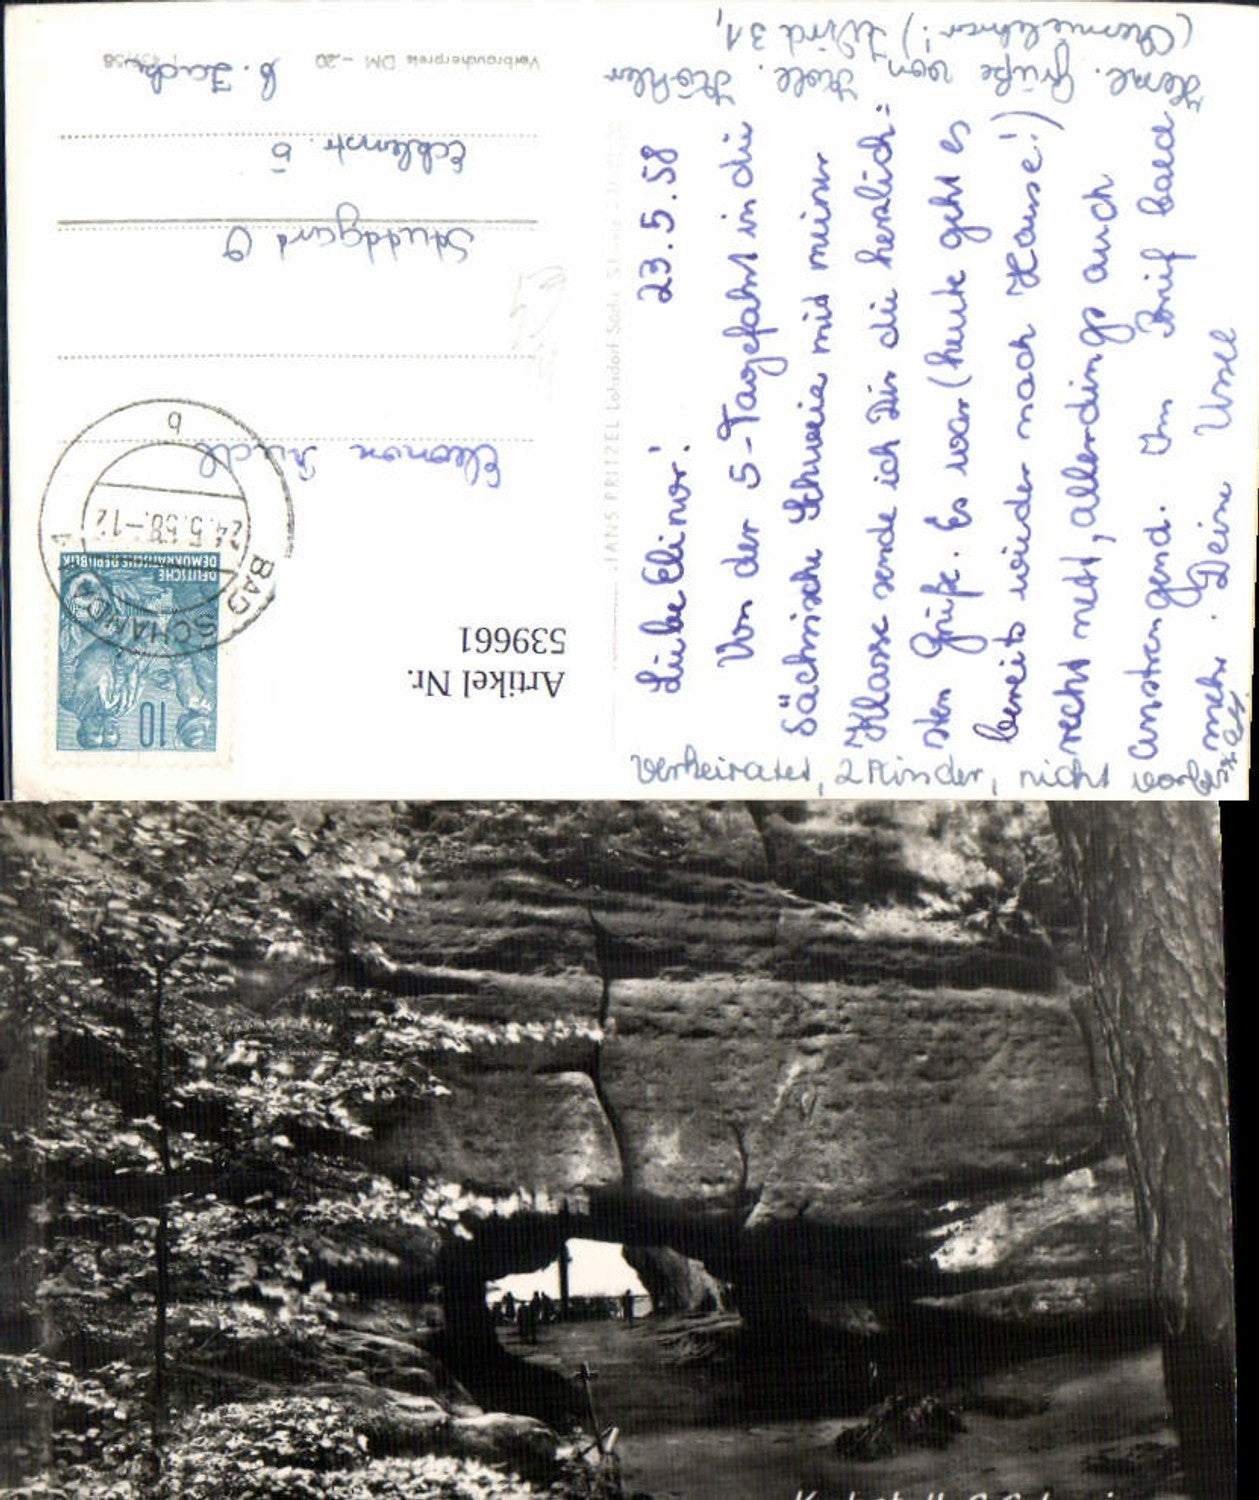 23.5.58
Liebe Elinor!
Von der 5-Tagefahrt in die
Sächsische Schweiz mit meiner
Klasse sende ich Dir die herzlich=
sten Grüße. Es war (heute geht es
bereits wieder nach Hause!)
recht nett, allerdings auch
anstrengend. Im Brief bald
mehr. Deine Ursel
Herzl. Grüße von Koll. Köhler
(Chemielehrer!) Wird 31,
verheiratet, 2 Kinder, nicht
Artikel Nr.
539661
10
DEUTSCHE
DEMOKRATISCHE REPUBLIK
BAD SCHANDAU 1
24.5.58.-12
b
Eleonore
Stuttgart O
Ecklenstr. 5
b.
Verbraucherpreis DM -.20
HANS PRITZEL